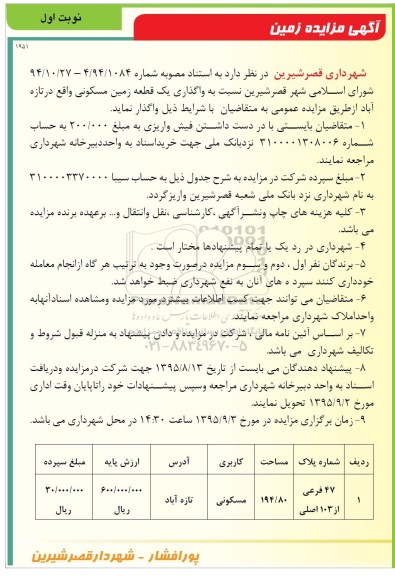 نوبت اول
آگهی مزایده زمین
۱۹۵۱
شهرداری قصرشیرین در نظر دارد به استناد مصوبه شماره ۴/۹۴/۱۰۸۴ – ۹۴/۱۰/۲۷
شورای اسلامی شهر قصرشیرین نسبت به واگذاری یک قطعه زمین مسکونی واقع درتازه
آباد ازطریق مزایده عمومی به متقاضیان با شرایط ذیل واگذار نماید.
۱- متقاضیان بایستی با در دست داشتن فیش واریزی به مبلغ ۲۰۰/۰۰۰ به حساب
شماره ۳۱۰۰۰۰۱۳۰۸۰۰۶ نزدبانک ملی جهت خریداسناد به واحددبیرخانه شهرداری
مراجعه نمایند.
۲- مبلغ سپرده شرکت در مزایده به شرح جدول ذیل به حساب سیبا ۳۱۰۰۰۰۳۳۷۰۰۰۰
به نام شهرداری نزد بانک ملی شعبه قصرشیرین واریزگردد.
۳- کلیه هزینه های چاپ ونشرآگهی ،کارشناسی ،نقل وانتقال و... برعهده برنده مزایده
می باشد.
۴- شهرداری در رد یک یا تمام پیشنهادها مختار است .
۵- برندگان نفر اول ، دوم و سوم مزایده درصورت وجود به ترتیب هر گاه ازانجام معامله
خودداری کنند سپرد ه های آنان به نفع شهرداری ضبط خواهد شد.
۶- متقاضیان می توانند جهت کسب اطلاعات بیشتردرمورد مزایده ومشاهده اسنادآنهابه
واحداملاک شهرداری مراجعه نمایند.
۷- بر اساس آئین نامه مالی ، شرکت در مزایده و دادن پیشنهاد به منزله قبول شروط و
تکالیف شهرداری می باشد.
۸- پیشنهاد دهندگان می بایست از تاریخ ۱۳۹۵/۸/۱۳ جهت شرکت درمزایده ودریافت
اسناد به واحد دبیرخانه شهرداری مراجعه وسپس پیشنهادات خود راتاپایان وقت اداری
مورخ ۱۳۹۵/۹/۲ تحویل نمایند.
۹- زمان برگزاری مزایده در مورخ ۱۳۹۵/۹/۳ ساعت ۱۴:۳۰ در محل شهرداری می باشد.
ردیف شماره پلاک مساحت کاربری آدرس ارزش پایه مبلغ سپرده
۱ ۴۷ فرعی از۱۰۳ اصلی ۱۹۴/۸۰ مسکونی تازه آباد ۶۰۰/۰۰۰/۰۰۰ ریال ۳۰/۰۰۰/۰۰۰ ریال
پورافشار - شهردارقصرشیرین
۰۲۱-۸۸۳۴۹۶۷۰-۵